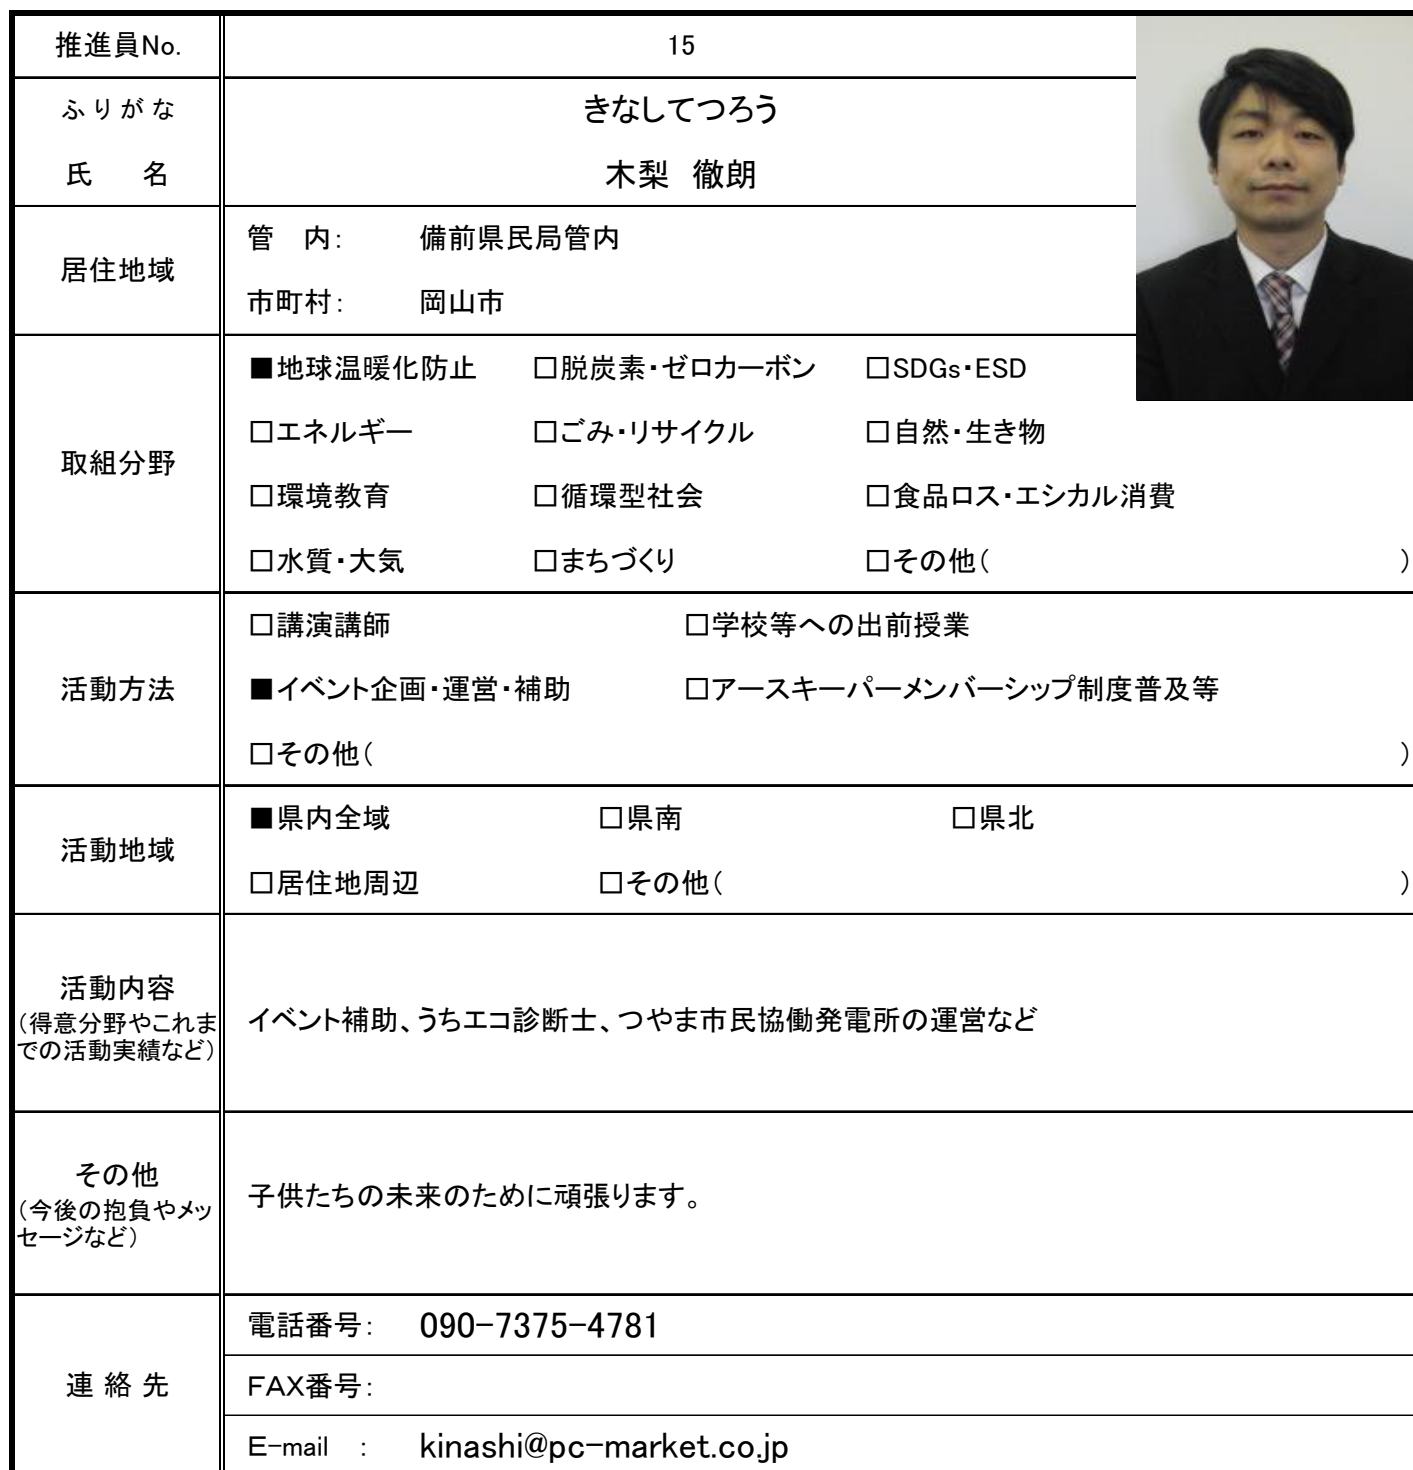 推進員No. 15
ふりがな きなしてつろう
氏　名 木梨　徹朗
居住地域
管　内： 備前県民局管内
市町村： 岡山市
取組分野
■地球温暖化防止 □脱炭素・ゼロカーボン □SDGs・ESD
□エネルギー □ごみ・リサイクル □自然・生き物
□環境教育 □循環型社会 □食品ロス・エシカル消費
□水質・大気 □まちづくり □その他（ ）
活動方法
□講演講師 □学校等への出前授業
■イベント企画・運営・補助 □アースキーパーメンバーシップ制度普及等
□その他（ ）
活動地域
■県内全域 □県南 □県北
□居住地周辺 □その他（ ）
活動内容
（得意分野やこれま
での活動実績など）
イベント補助、うちエコ診断士、つやま市民協働発電所の運営など
その他
（今後の抱負やメッ
セージなど）
子供たちの未来のために頑張ります。
連絡先
電話番号： 090-7375-4781
FAX番号：
E-mail ： kinashi@pc-market.co.jp